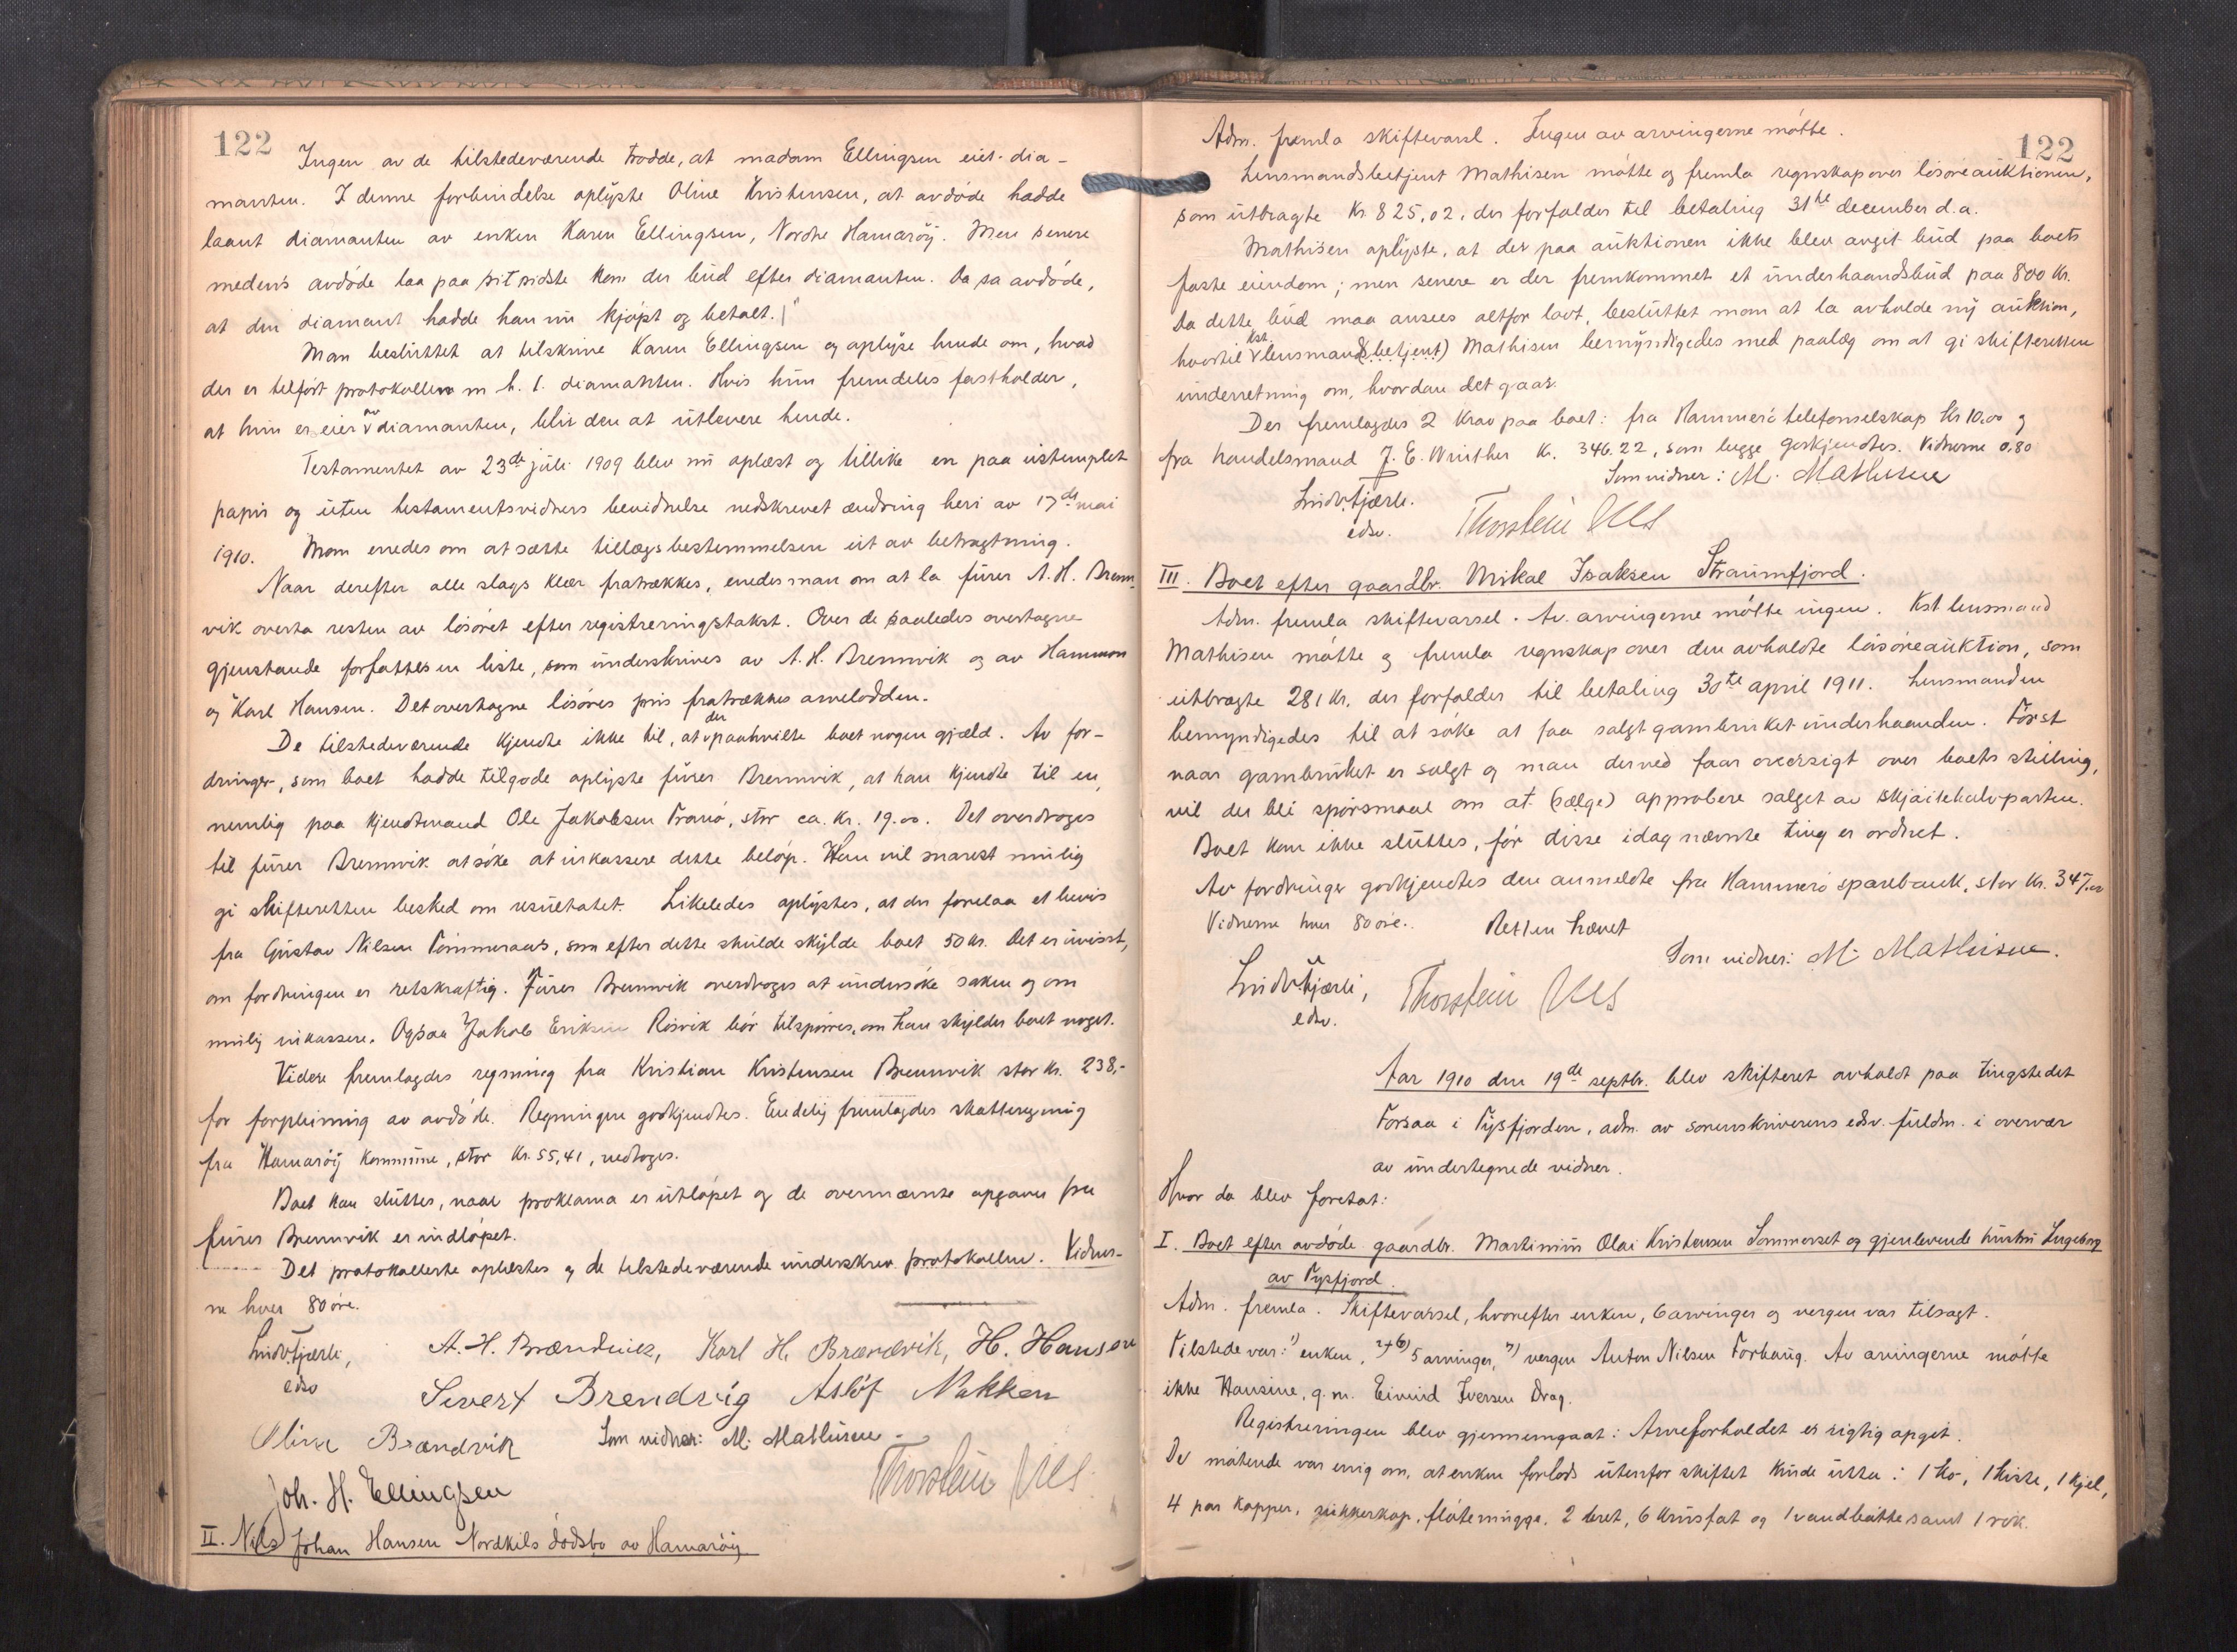 122
Ingen av de tilstedeværende trodde, at madam Ellingsen eiet dia-
manten. I denne forbindelse oplyste Oline Kristensen, at avdøde hadde
laant diamanten av enken Karen Ellingsen, Nordre Hamarøy. Men senere
medens avdøde laa paa sit sidste kom der bud efter diamanten. Da sa avdøde,
at den diamant hadde han nu kjøpt og betalt.
Man besluttet at tilskrive Karen Ellingsen og oplyse hende om, hvad
der er tilført protokollen m. h. t. diamanten. Hvis hun fremdeles fastholder,
at hun er eier av diamanten, blir den at utlevere hende.
Testamentet av 23de juli 1909 blev nu oplæst og tillike en paa ustemplet
papir og uten testamentsvidners bevidnelse nedskrevet ændring heri av 17de mai
1910. Man enedes om at sætte tillægsbestemmelsen ut av betragtning.
Naar derefter alle slags klær fratrækkes, enedes man om at la furer A. H. Brenn-
vik overta resten av løsøret efter registreringstakst. Over de saaledes overtagne
gjenstande forfattes en liste, som underskrives av A. H. Brennvik og av Hammon
og Karl Hansen. Det overtagne løsøres pris fratrækkes arvelodden.
De tilstedeværende kjendte ikke til, at der paahvilte boet nogen gjæld. Av for-
dringer, som boet hadde tilgode oplyste furer Brennvik, at han kjendte til en,
nemlig paa kjendtmand Ole Jakobsen Tranø, stor ca. kr. 19.00. Det overdroges
til furer Brennvik at søke at inkassere dette beløp. Han vil snarest mulig
gi skifteretten besked om resultatet. Likeledes oplystes, at der forelaa et bevis
fra Gustav Nilsen Tømmeraas, som efter dette skulde skylde boet 50 kr. Det er uvisst,
om fordringen er retskraftig. Furer Brennvik overdroges at undersøke saken og om
mulig inkassere. Ogsaa Jakob Eriksen Rosvik bør tilspørres, om han skylder boet noget.
Videre fremlagdes regning fra Kristian Kristensen Brennvik stor kr. 238,-
for forpleining av avdøde. Regningen godkjendtes. Endelig fremlagdes skatteregning
fra Hamarøy kommune, stor kr. 55,41, vedtoges.
Boet kan sluttes, naar proklama er utløpet og de ovennævnte opgaver fra
furer Brennvik er indløpet.
Det protokollerte oplæstes og de tilstedeværende underskrev protokollen. Vidner-
ne hver 80 øre.
Lindv. Fjærli, A. H. Brændvik, Karl H. Brændvik, H. Hansen
edsv Severt Brendvig Asløf Nakken
Oline Brændvik Som vidner: M. Mathisen
Thorstein
Joh. H. Ellingsen
II. Nils Johan Hansen Nordkils dødsbo av Hamarøy
122
Adm. fremla skiftevarsel. Ingen av arvingerne møtte.
Lensmandsbetjent Mathisen møtte og fremla regnskap over løsøreauktionen,
som utbragte kr. 825,02, der forfalder til betaling 31te december d.a.
Mathisen oplyste, at der paa auktionen ikke blev avgit bud paa boets
faste eiendom; men senere er der fremkommet et underhaandsbud paa 800 kr.
Da dette bud maa ansees altfor lavt, besluttet man at la avholde ny auktion,
hvortil kst. lensmand (sbetjent) Mathisen bemyndigedes med paalæg om at gi skifteretten
underretning om, hvordan det gaar.
Der fremlagdes 2 krav paa boet: fra Hammerø telefonselskap kr 10,00 og
fra handelsmand J. E. Winther kr. 346.22, som begge godkjendtes. Vidnerne 0,80
Som vidner: M. Mathisen
Lindv. Fjærli.
edsv. Thorstein
III. Boet efter gaardbr. Mikal Isaksen Straumfjord.
Adm. fremla skiftevarsel. Av arvingerne møtte ingen. Kst lensmand
Mathisen møtte og fremla regnskap over den avholdte løsøreauktion, som
utbragte 281 kr. der forfalder til betaling 30te april 1911. Lensmanden
bemyndigedes til at søke at faa solgt gambruket underhaanden. Først
naar gambruket er solgt og man derved faar oversigt over boets stilling,
vil der bli spørsmaal om at (sælge) approbere salget av skjøitehalvparten.
Boet kan ikke sluttes, før disse idag nævnte ting er ordnet.
Av fordringer godkjendtes den anmeldte fra Hammerø sparebank, stor kr. 347,00
Vidnerne hver 80 øre. Retten hævet
Som vidner: M. Mathisen.
Lindv. Fjærli,
edsv. Thorstein
Aar 1910 den 19de septbr. blev skifteret avholdt paa tingstedet
Forsaa i Tysfjorden, adm. av sorenskriverens edsv. fuldm. i overvær
av undertegnede vidner.
Hvor da blev foretat:
I. Boet efter avdøde gaardbr. Martinius Olai Kristensen Sommerset og gjenlevende hustru Ingeborg
av Tysfjord.
Adm. fremla. Skiftevarsel, hvorefter enken, 6 arvinger og vergen var tilsagt.
Tilstede var: 1) enken, 2)+6) 5 arvinger, 7) vergen Anton Nilsen Forhaug. Av arvingerne møtte
ikke Hansine, g. m. Eivind Iversen Drag.
Registreringen blev gjennemgaat: Arveforholdet er rigtig opgit.
De møtende var enig om, at enken forlods utenfor skiftet kunde utta: 1 ko, 1 kiste, 1 kjel,
4 par kopper, sukkerkop, fløtemugge, 2 beret, 6 krusfat og 1 vandbøtte samt 1 rok.